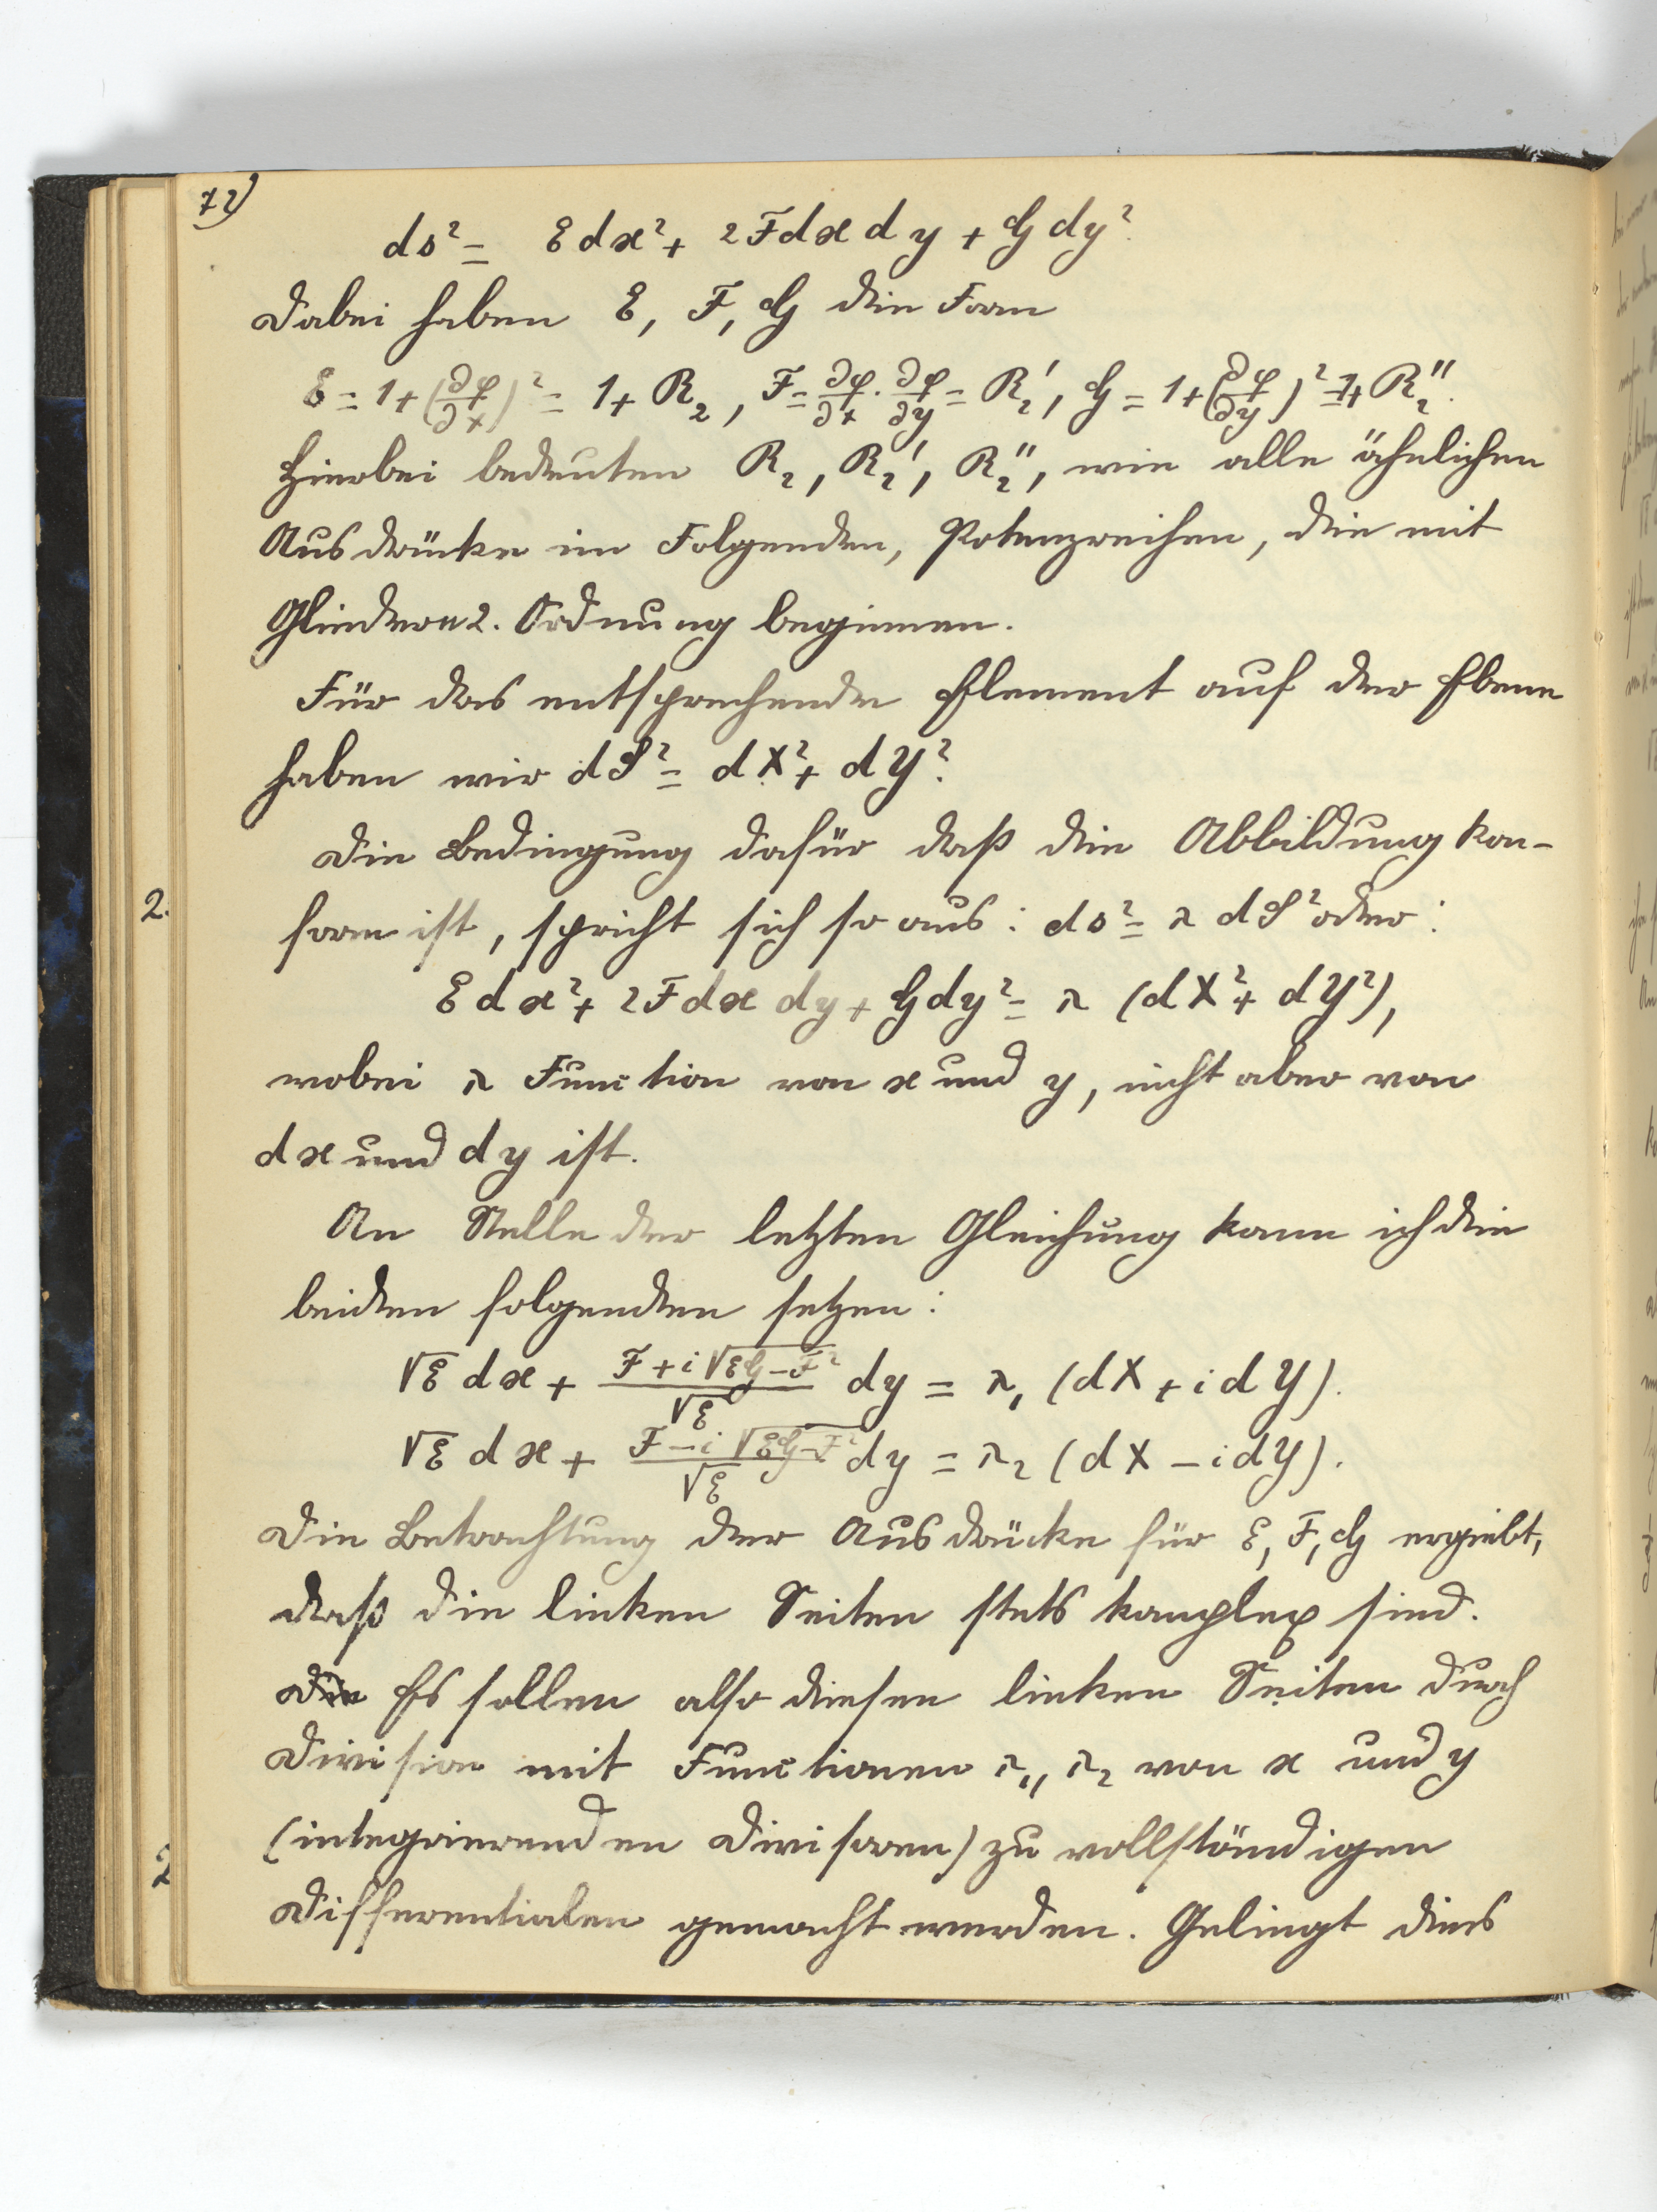 72)
ds² = E dx² + 2F dx dy + G dy².
Dabei haben E, F, G die Form
E = 1 + (∂φ/∂x)² = 1 + R₂, F = ∂φ/∂x · ∂φ/∂y = R₂′, G = 1 + (∂φ/∂y)² = 1 + R₂″.
Hierbei bedeuten R₂, R₂′, R₂″, wie alle ähnlichen
Ausdrücke im Folgenden, Potenzreihen, die mit
Gliedern 2. Ordnung beginnen.
Für das entsprechende Element auf der Ebene
haben wir dS² = dX² + dY².
Die Bedingung dafür daß die Abbildung kon-
2.
form ist, spricht sich so aus: ds² = λ dS² oder:
E dx² + 2F dx dy + G dy² = λ (dX² + dY²),
wobei λ Function von x und y, nicht aber von
dx und dy ist.
An Stelle der letzten Gleichung kann ich die
beiden folgenden setzen:
√E dx + (F + i√(EG − F²))/√E dy = λ₁ (dX + i dY).
√E dx + (F − i√(EG − F²))/√E dy = λ₂ (dX − i dY).
Die Betrachtung der Ausdrücke für E, F, G ergiebt,
daß die linken Seiten stets komplex sind.
Die Es sollen also diesen linken Seiten durch
Division mit Functionen λ₁, λ₂ von x und y
(integrierenden Divisoren) zu vollständigen
Differentialen gemacht werden. Gelingt dies